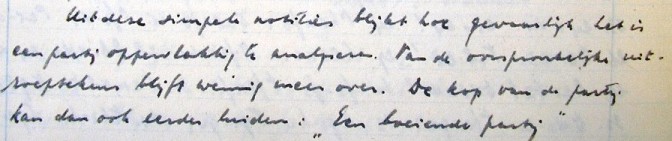 Uit deze simpele notities blijkt hoe gevaarlijk het is
een partij oppervlakkig te analyseren. Van de oorspronkelijke uit-
roeptekens blijft weinig meer over. De kop van de partij
kan dan ook eerder luiden: „Een boeiende partij"